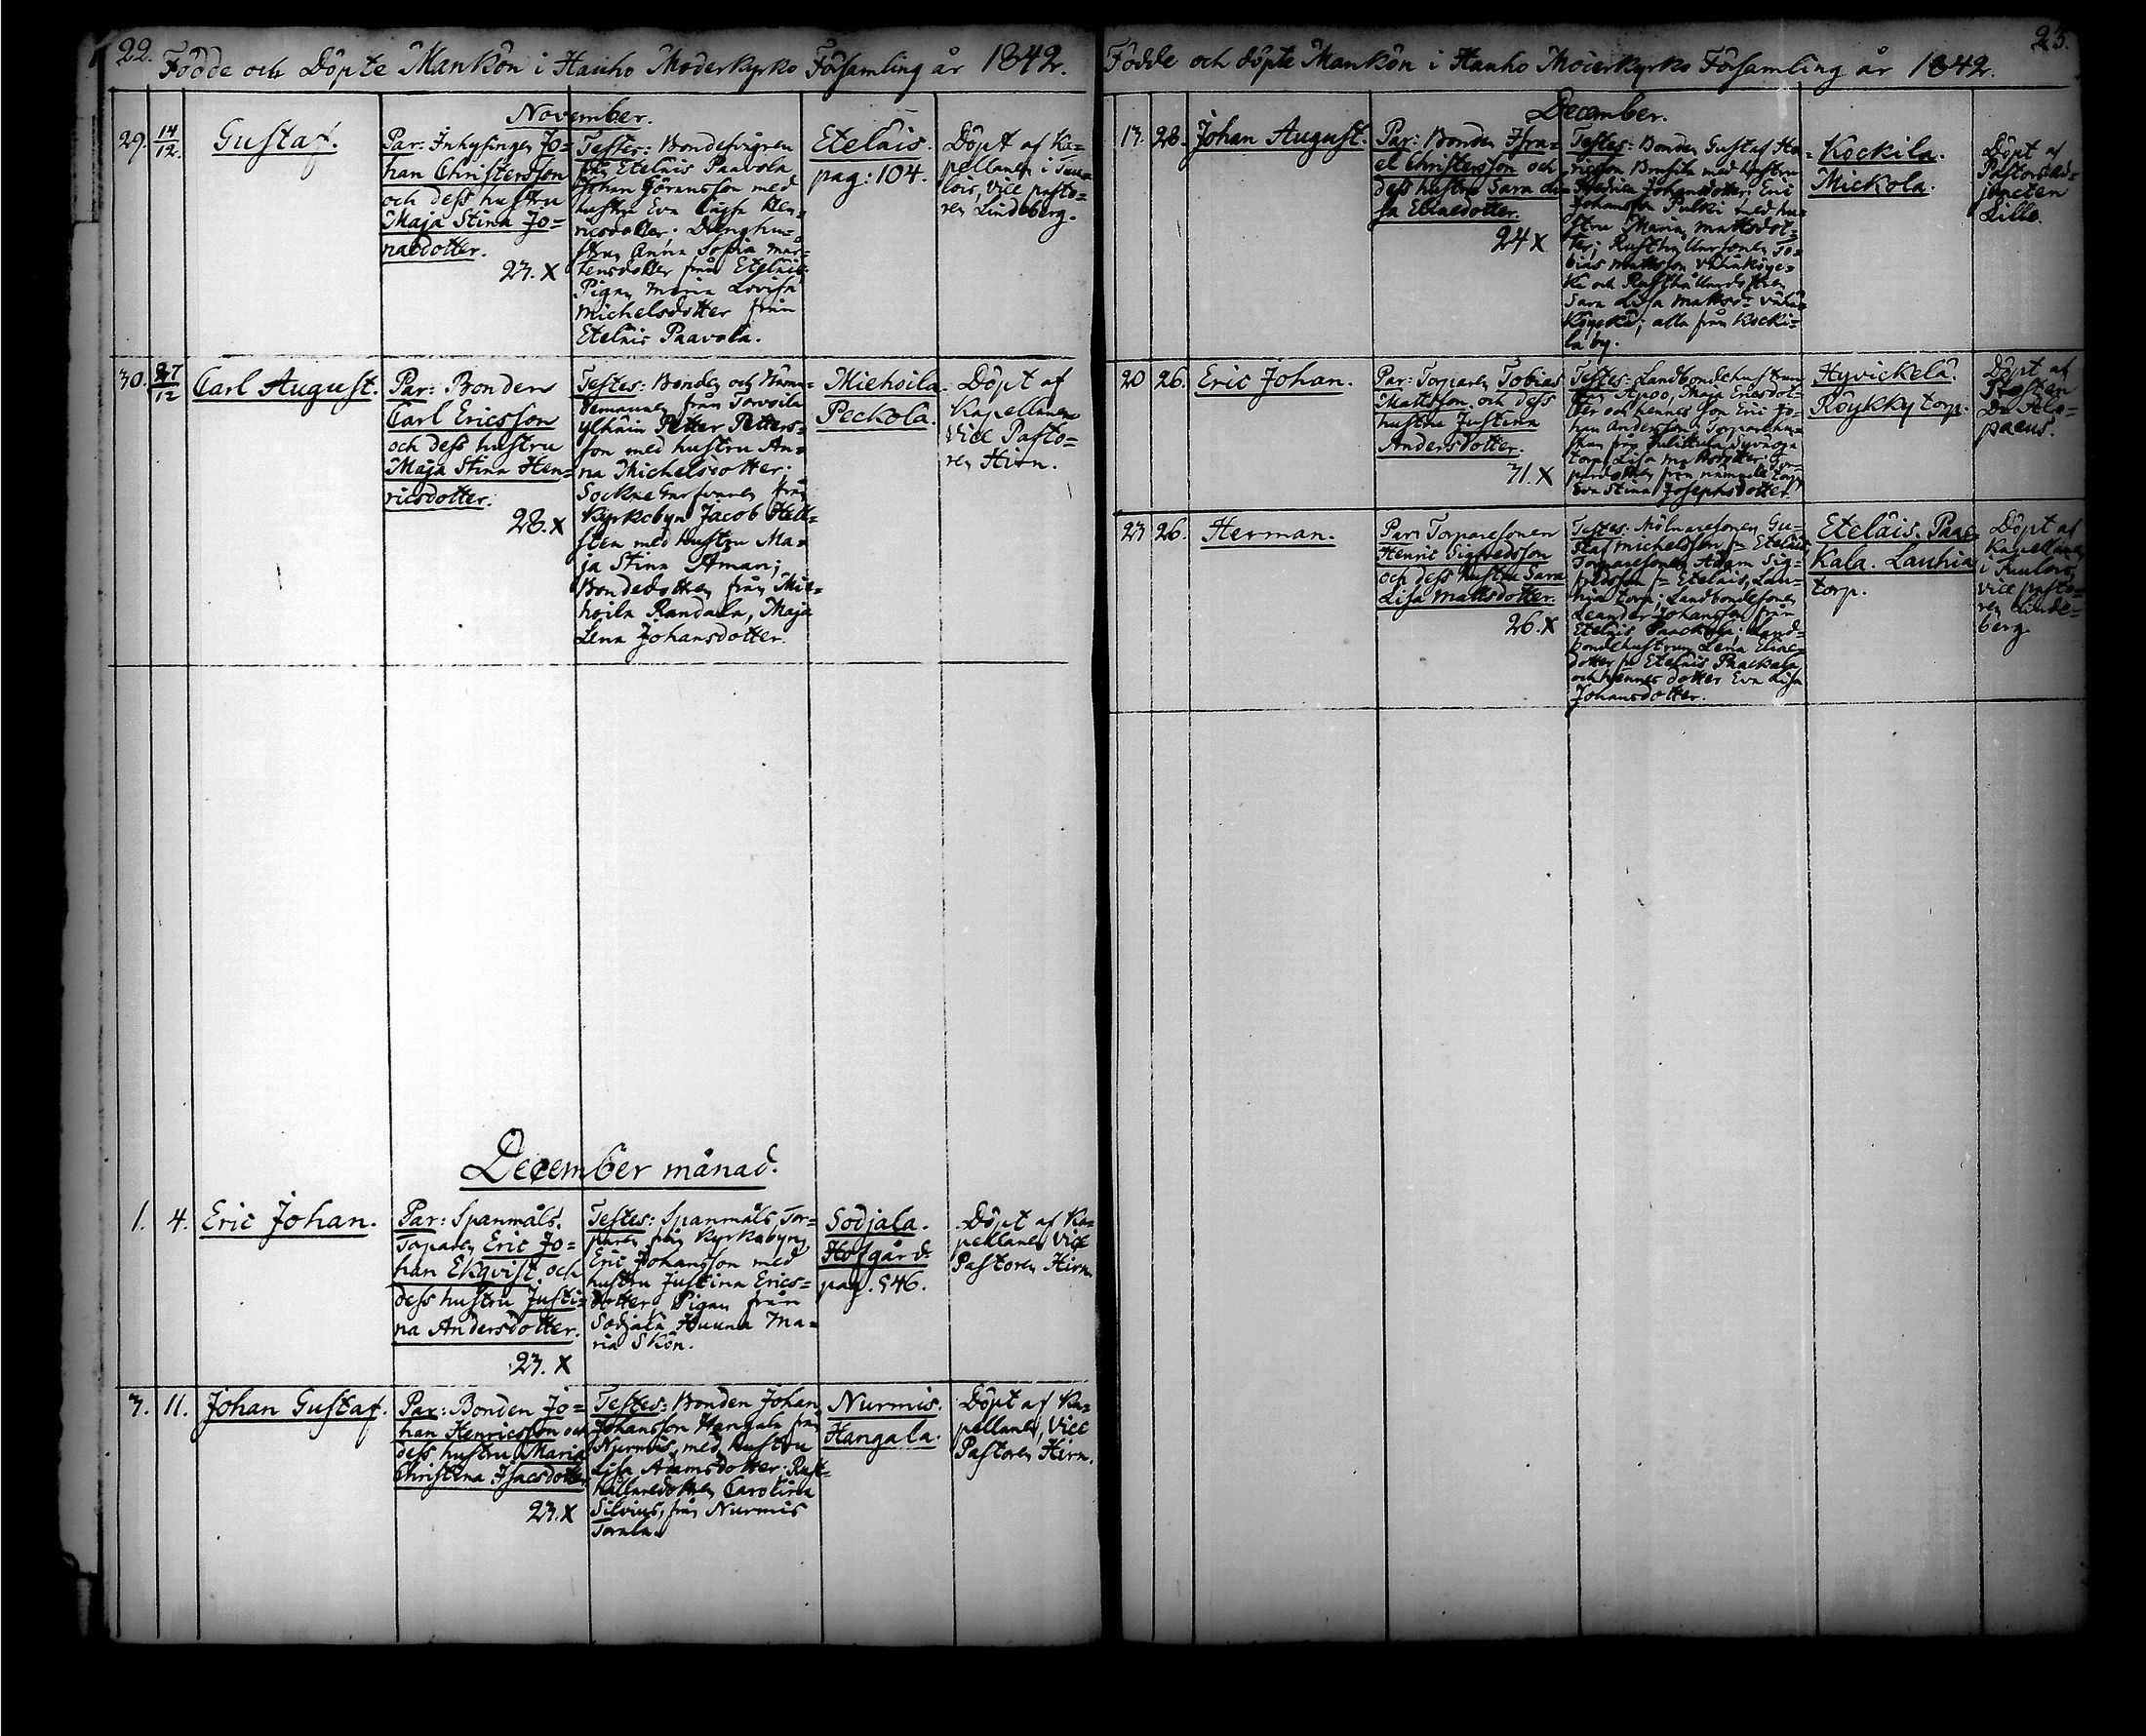 22. Födde och Döpte Mankön i Hauho Moderkyrko Församling år 1842.
November.
29. 14/12. Gustaf.
Par: Inhysingen Jo=
han Christersson
och dess hustru
Maja Stina Jo=
nasdotter.
23. X
Testes: Bondesvågren
från Etelais Paavola
Johan Göransson med
hustru Eva Cajsa Hen=
ricsdotter. Drenghu=
strun Anna Sofia Mår=
tensdotter från Etelais.
Pigan Maria Lovisa
Michelsdotter från
Etelais Paavola.
Etelais.
pag: 104.
Döpt af Ka=
pellanen i Tuu=
lois, Vice pasto=
ren Lindeberg.
30. 27/12 Carl August.
Par: Bonden
Carl Ericsson
och dess hustru
Maja Stina Hen=
ricsdotter.
28. X
Testes: Bonden och Näm=
demannen från Torvoila
Ylhäin Petter Petters=
son med hustru An=
na Michelsdotter;
Sockne från
Kyrkobyn Jacob Hell=
sten med hustru Ma=
ja Stina Åman;
Bondedottren från Mie=
hoila Randala, Maja
Lena Johansdotter.
Miehoila.
Peckola.
Döpt af
Kapellanen
Vice Pasto=
ren Hirn.
December månad.
1. 4. Eric Johan.
Par: Spanmåls,
Torparen Eric Jo=
han Ekqvist och
dess hustru Justi=
na Andersdotter.
23. X
Testes: Spanmåls Tor=
paren från Kyrkobyn
Eric Johansson med
hustru Justina Erics=
dotter, Pigan från
Sodjala Huuna Ma=
ria Skön.
Sodjala.
Hofgård.
pag. 546.
Döpt af Ka=
pellanen Vice
Pastoren Hirn.
3. 11. Johan Gustaf.
Par: Bonden Jo=
han Henricsson och
dess hustru Maria
Christina Isacsdotter
23. X
Testes: Bonden Johan
Johansson Hangala från
Nurmis, med hustru
Lisa Adamsdotter. Rust=
hållaredottren Carolina
Silvius, från Nurmis
Torala.
Nurmis.
Hangala.
Döpt af Ka=
pellanen, Vice
Pastoren Hirn.
23.
Födde och döpte Mankön i Hauho Moderkyrko Församling år 1842.
December.
13. 28. Johan August.
Par: Bonden Isra=
el Christersson och
dess hustru Sara Lo=
sa Eliaedotter.
24 X
Testes: Bonden Gustaf Hen=
ricsson med hustru
Fredrica Johansdotter; Eric
Johansson Pulki med hu=
stru Maria Mattsdot=
ter; Rusthållaresonen To=
bias Mattsson
och Rusthållaredottren
Sara Lisa Mattsd:r
alla från Kocki=
la by.
Kockila.
Mickola.
Döpt af
Pastorsad=
juncten
Lille.
20 26. Eric Johan.
Par: Torparen Tobias
Mattsson och dess
hustru Justina
Andersdotter.
31. X
Testes: Landbondehustrun
Maja Ericsdot=
ter och hennes son Eric Jo=
han Andersson; Torparehu=
strun från
torp Lisa Mattsdotter; Tor=
paredottren från nämnde torp
Eva Stina Josephsdotter.
Hyvickelä.
Röykky torp.
Döpt af
Prosten
D:r Alo=
paeus.
23 26. Herman.
Par: Torparesonen
Henric Sigfredsson
och dess hustru Sara
Lisa Mattsdotter.
26. X
Testes: Mölnaresonen Gu=
staf Michelsson fr. Etelais
Torparesonen Adam Sig=
fredsson fr. Etelais, Lau=
hia torp; Landbondesonen
Leander Johansson från
Etelais Paackala; Land=
bondehustrun Lena Eliae=
dotter fr. Etelais Paackala
och hennes dotter Eva Lisa
Johansdotter.
Etelais. Paac
kala. Lauhia
torp.
Döpt af
Kapellanen
i Tuulois,
Vice pasto=
ren Linde=
berg.